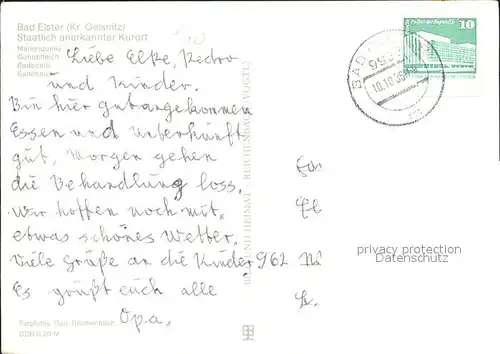 Bad Elster (Kr. Oelsnitz)
Staatlich anerkannter Kurort
Marienquelle
Gondelteich
Badecafé
Badehaus
Liebe Elke, Pedro
und Kinder.
Bin hier gut angekommen
Essen und Unterkunft
gut, Morgen gehen
die Behandlung loss.
Wir hoffen noch mit
etwas schönes Wetter.
Viele Grüße an die Kinder
Es grüßt euch alle
Opa.
Farbfotos: Darr, Reichenbach
DDR 0,20 M
BILD UND HEIMAT REICHENBACH (VOGTL)
BAD
10.10.86
10
962
privacy protection
Datenschutz